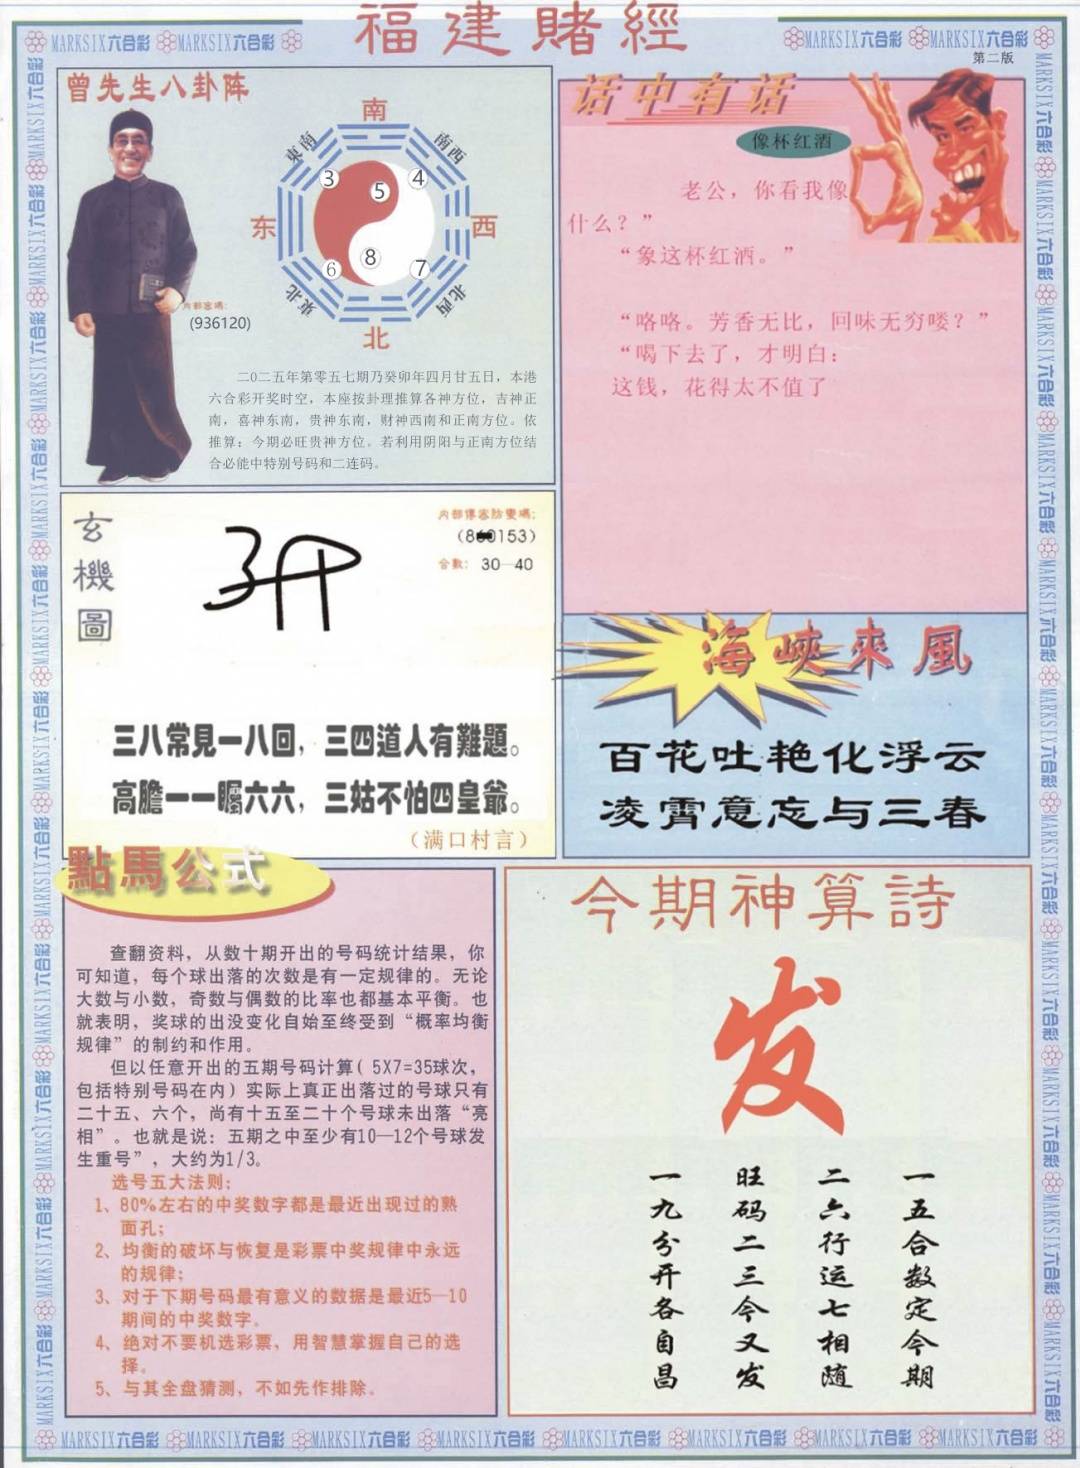 福建賭經
MARKSIX六合彩 MARKSIX六合彩
MARKSIX六合彩 MARKSIX六合彩
第二版
曾先生八卦阵
南
東南
南西
3
5
4
东
西
6
8
7
東北
北西
北
内部密碼：
(936120)
二0二五年第零五七期乃癸卯年四月廿五日，本港
六合彩开奖时空，本座按卦理推算各神方位，吉神正
南，喜神东南，贵神东南，财神西南和正南方位。依
推算；今期必旺贵神方位。若利用阴阳与正南方位结
合必能中特别号码和二连码。
话中有话
像杯红酒
老公，你看我像
什么？”
“象这杯红酒。”
“咯咯。芳香无比，回味无穷喽？”
“喝下去了，才明白：
这钱，花得太不值了
玄機圖
内部傳密防變碼：
合數： 30—40
三八常見一八回，三四道人有難題。
高膽一一矚六六，三姑不怕四皇爺。
（满口村言）
海峽來風
百花吐艳化浮云
凌霄意忘与三春
點馬公式
查翻资料，从数十期开出的号码统计结果，你
可知道，每个球出落的次数是有一定规律的。无论
大数与小数，奇数与偶数的比率也都基本平衡。也
就表明，奖球的出没变化自始至终受到“概率均衡
规律”的制约和作用。
但以任意开出的五期号码计算( 5X7=35球次，
包括特别号码在内）实际上真正出落过的号球只有
二十五、六个，尚有十五至二十个号球未出落“亮
相”。也就是说：五期之中至少有10—12个号球发
生重号”，大约为1/3。
选号五大法则：
1、80%左右的中奖数字都是最近出现过的熟
面孔；
2、均衡的破坏与恢复是彩票中奖规律中永远
的规律；
3、对于下期号码最有意义的数据是最近5—10
期间的中奖数字。
4、绝对不要机选彩票，用智慧掌握自己的选
择。
5、与其全盘猜测，不如先作排除。
今期神算詩
发
一五合数定今期
二六行运七相随
旺码二三今又发
一九分开各自昌
MARKSIX六合彩 MARKSIX六合彩 MARKSIX六合彩 MARKSIX六合彩 MARKSIX六合彩 MARKSIX六合彩 MARKSIX六合彩 MARKSIX六合彩